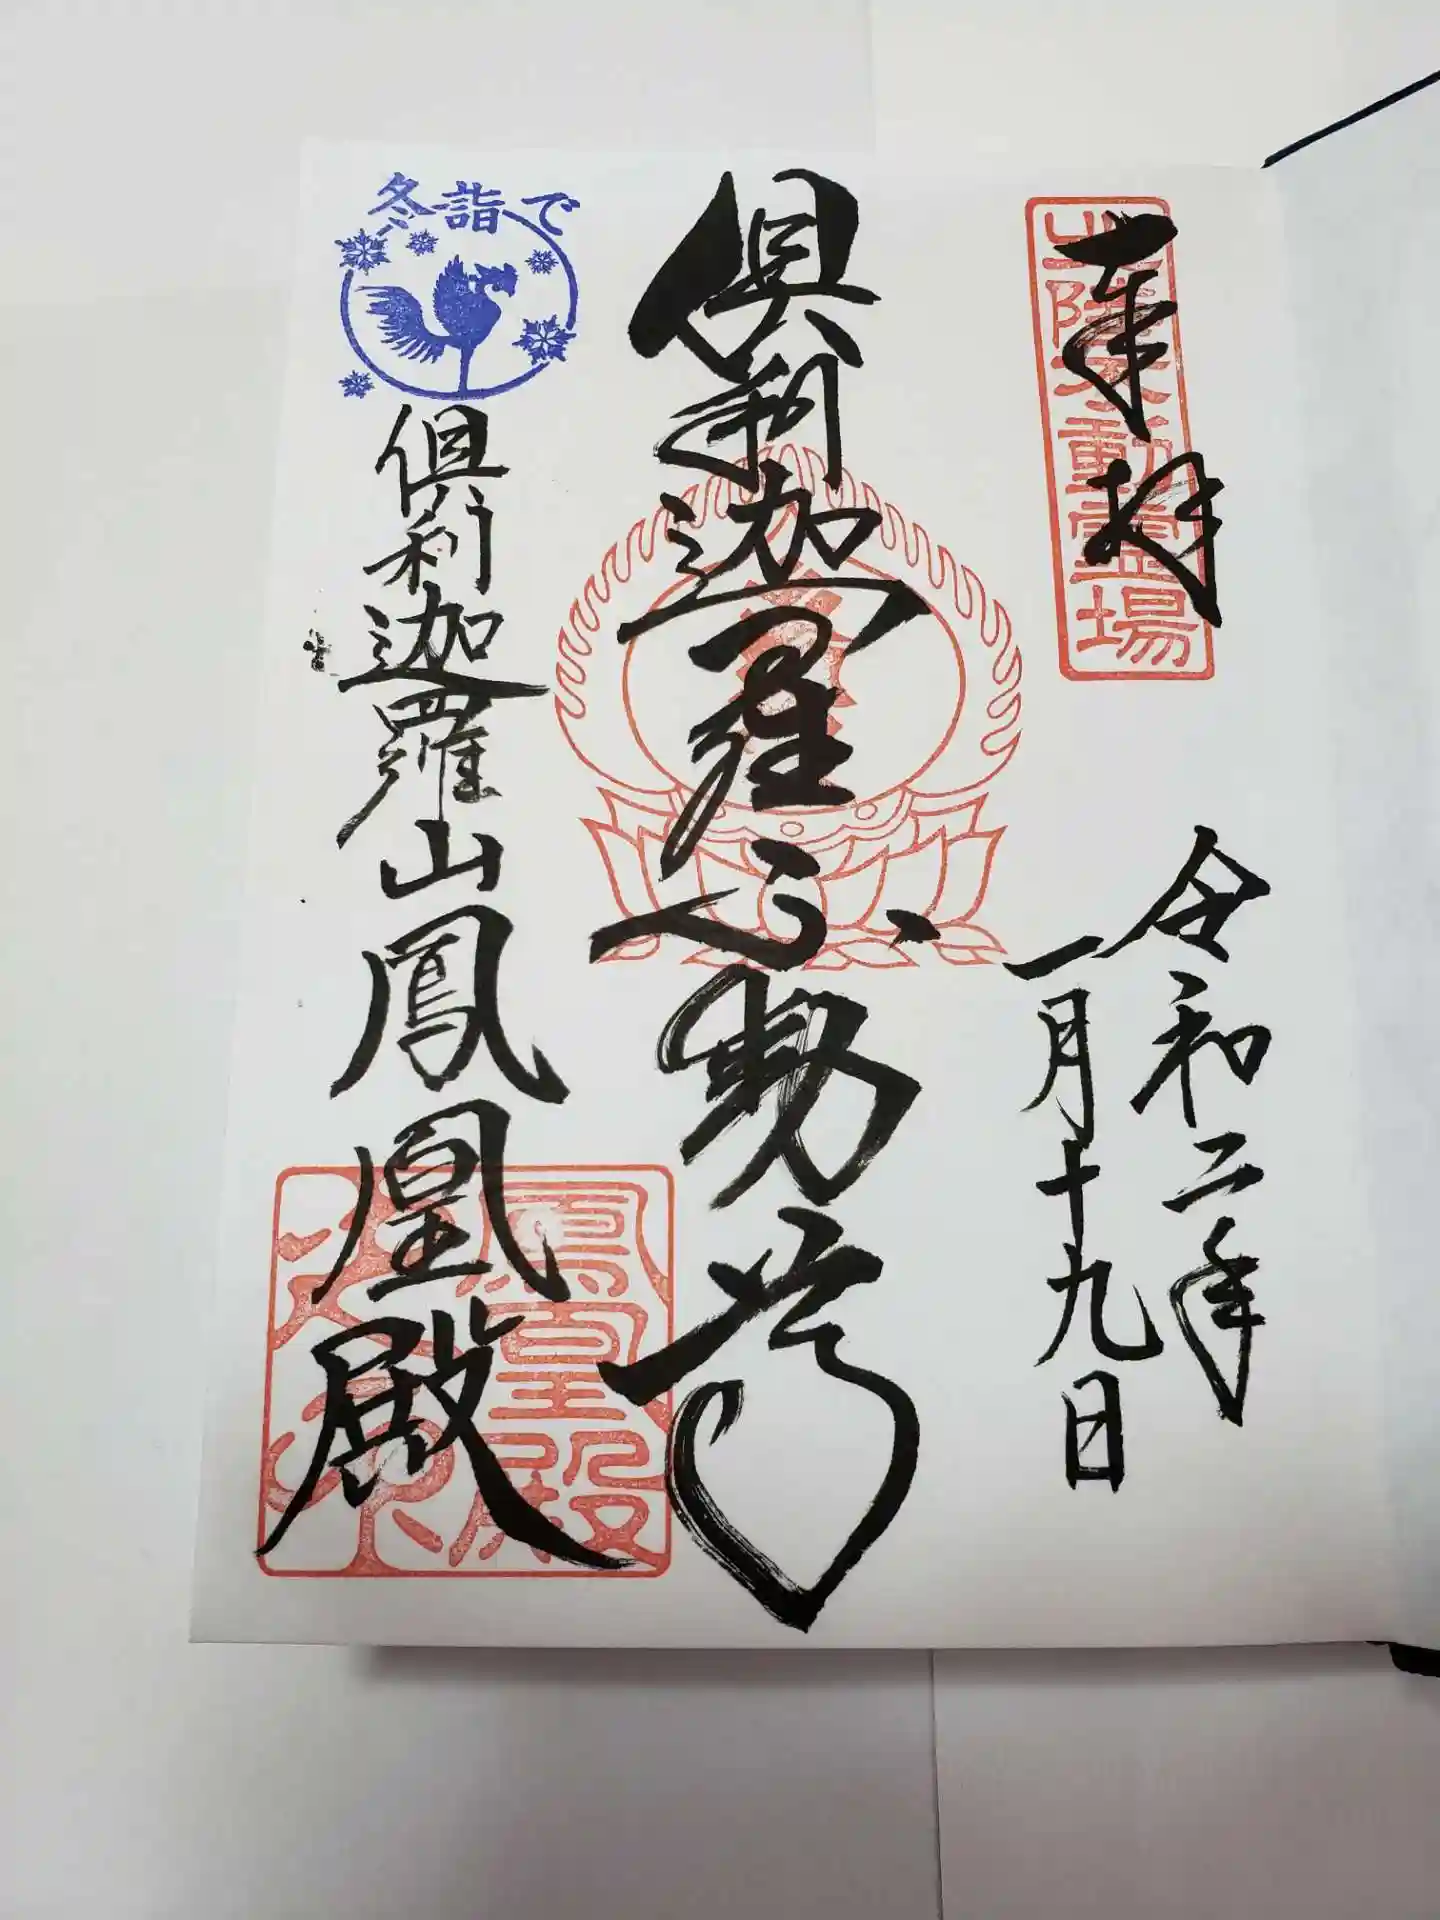 奉拝
北陸不動霊場
令和二年
一月十九日
倶利迦羅不動尊
冬詣で
倶利迦羅山鳳凰殿
鳳皇殿